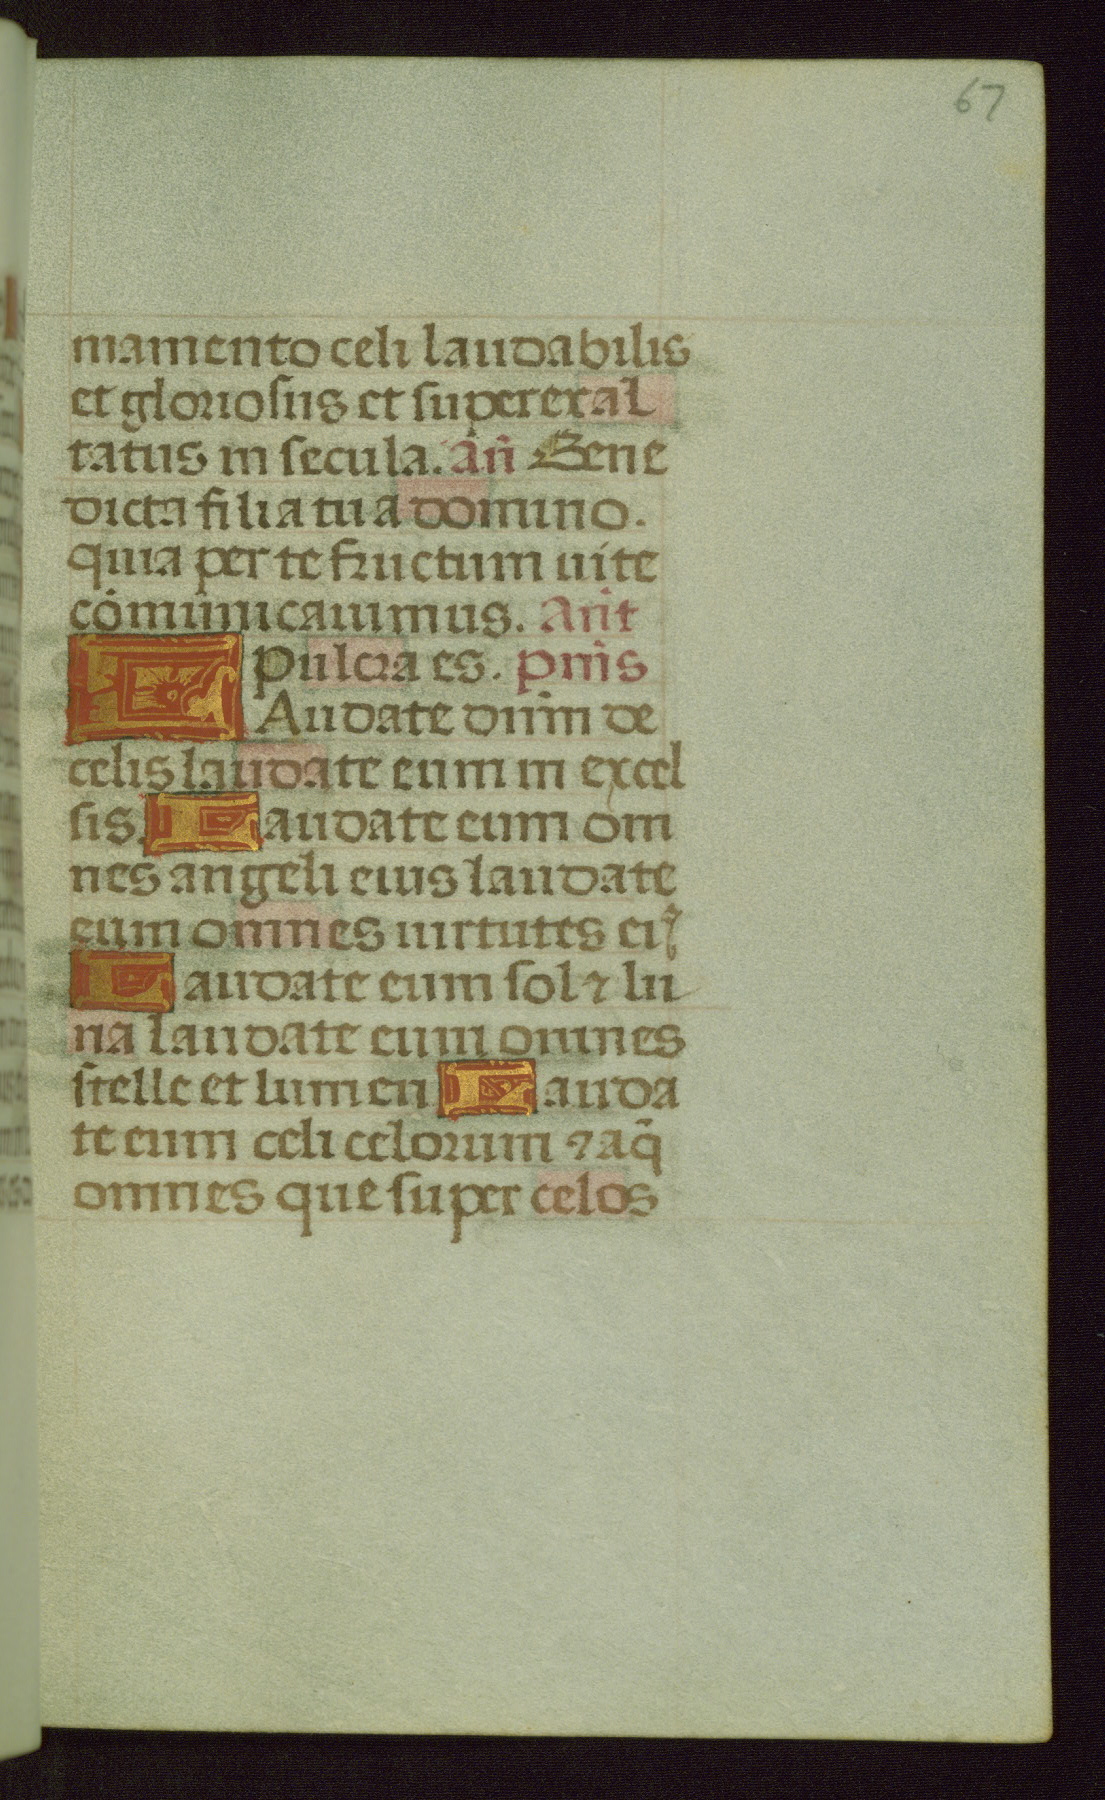 67
mamento celi laudabilis
et gloriosus et superexal
tatus in secula. Añ Bene
dicta filia tu a domino.
quia per te fructum uite
cōmunicauimus. Ant̄
Pulcra es. pm̄s
LAudate dn̄m de
celis laudate eum in excel
sis. Laudate eum om
nes angeli eius laudate
eum omnes uirtutes eiꝰ
Laudate eum sol ⁊ lu
na laudate eum omnes
stelle et lumen Lauda
te eum celi celorum ⁊ aq̄
omnes que super celos